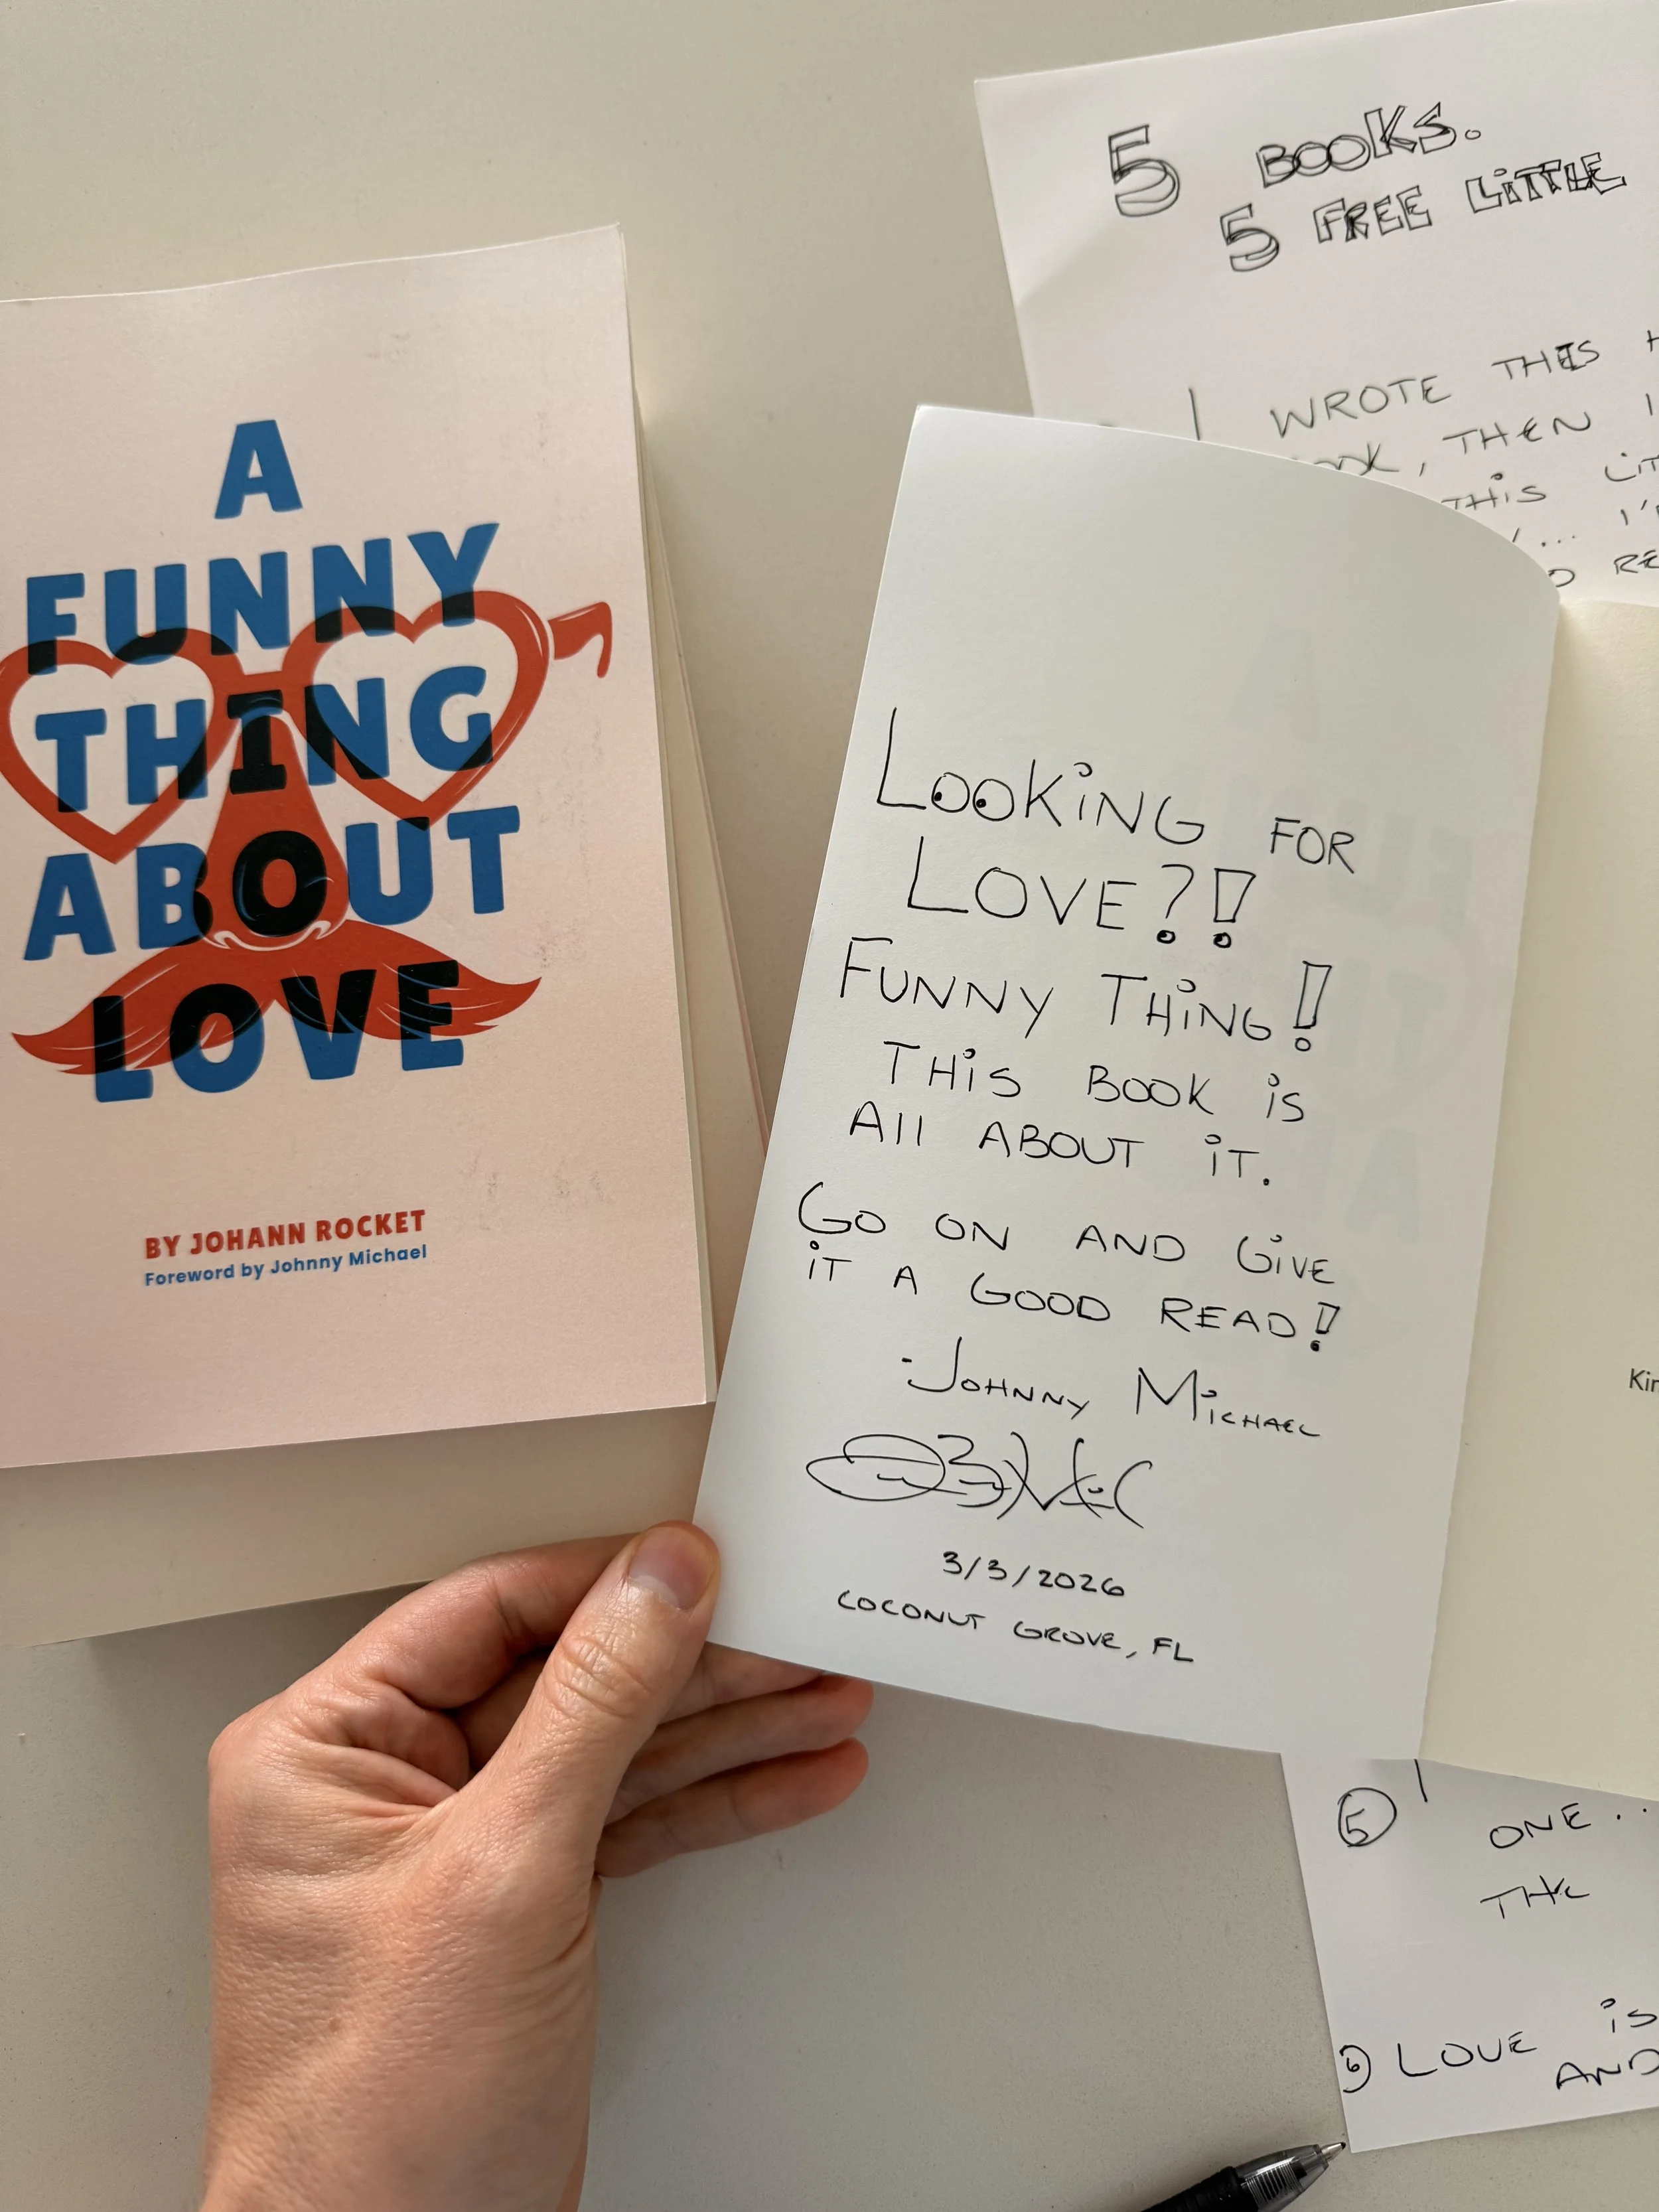 A
FUNNY
THING
ABOUT
LOVE
BY JOHANN ROCKET
Foreword by Johnny Michael
5 BOOKS.
5 FREE LiTTLE
I WROTE THIS
, THEN I
THiS
... I'
LOOKiNG FOR
LOVE?!
FUNNY THiNG!
THiS BOOK iS
All ABOUT iT.
GO ON AND GiVE
iT A GOOD READ!
-JOHNNY MiCHAEL
3/3/2026
COCONUT GROVE, FL
Kin
5
ONE..
THE
6 LOVE iS
AND